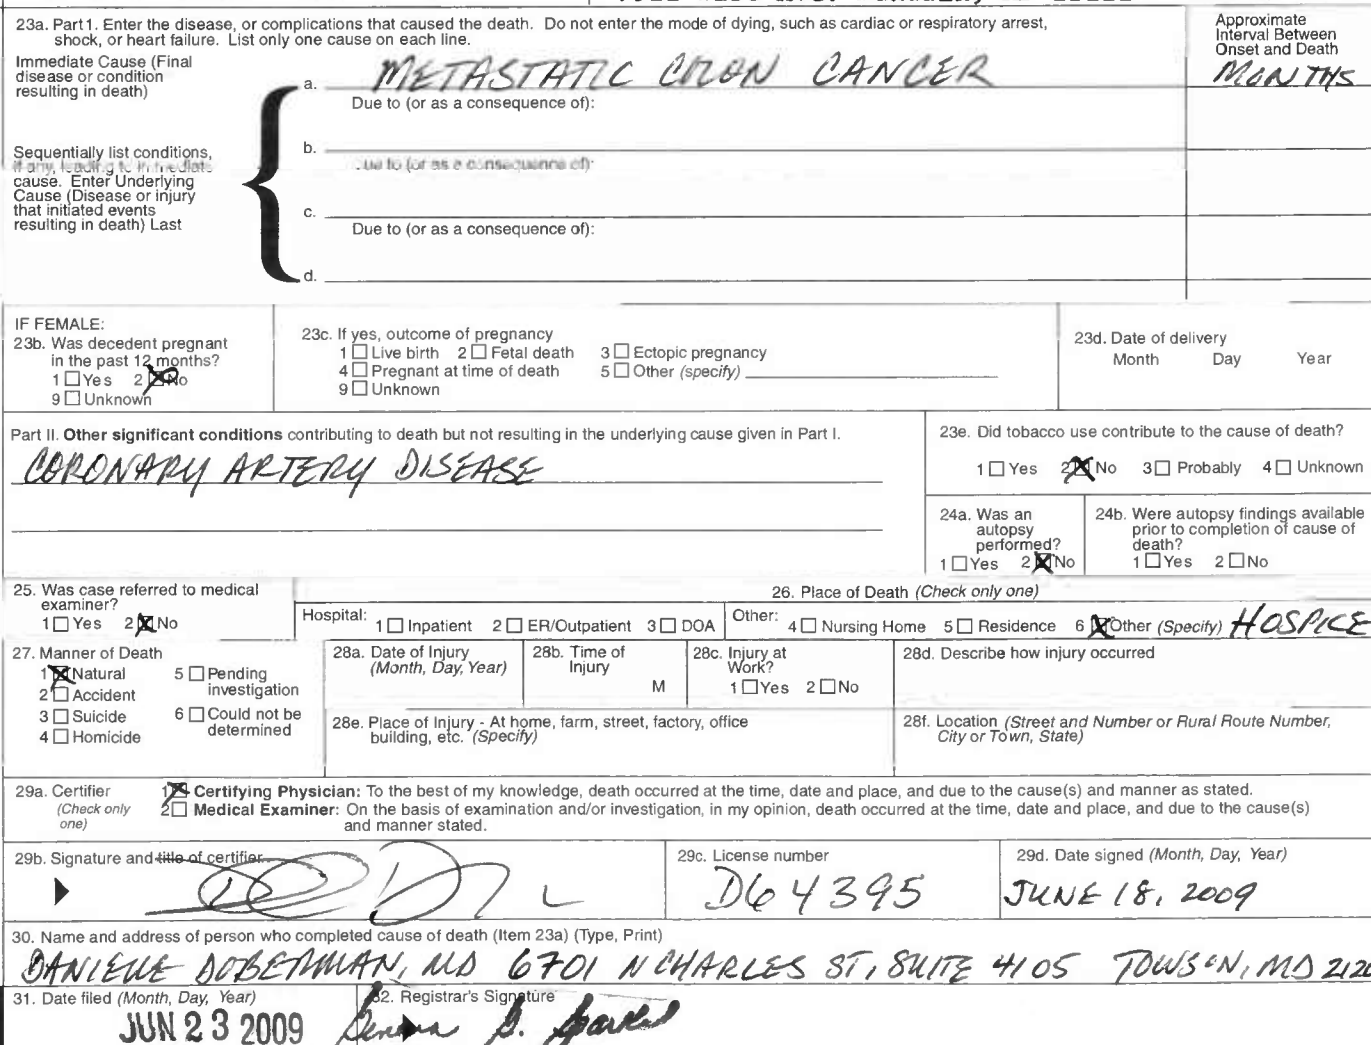 23a. Part1. Enter the disease, or complications that caused the death. Do not enter the mode of dying, such as cardiac or respiratory arrest,
shock, or heart failure. List only one cause on each line.
Approximate
Interval Between
Onset and Death
Immediate Cause (Final
disease or condition
resulting in death)
a. METASTATIC COLON CANCER MONTHS
Due to (or as a consequence of):
Sequentially list conditions,
if any, leading to immediate
cause. Enter Underlying
Cause (Disease or injury
that initiated events
resulting in death) Last
b.
Due to (or as a consequence of):
c.
Due to (or as a consequence of):
d.
IF FEMALE:
23b. Was decedent pregnant
in the past 12 months?
1 ☐ Yes 2 ☒ No
9 ☐ Unknown
23c. If yes, outcome of pregnancy
1 ☐ Live birth 2 ☐ Fetal death 3 ☐ Ectopic pregnancy
4 ☐ Pregnant at time of death 5 ☐ Other (specify)
9 ☐ Unknown
23d. Date of delivery
Month Day Year
Part II. Other significant conditions contributing to death but not resulting in the underlying cause given in Part I.
CORONARY ARTERY DISEASE
23e. Did tobacco use contribute to the cause of death?
1 ☐ Yes 2 ☒ No 3 ☐ Probably 4 ☐ Unknown
24a. Was an
autopsy
performed?
1 ☐ Yes 2 ☒ No
24b. Were autopsy findings available
prior to completion of cause of
death?
1 ☐ Yes 2 ☐ No
25. Was case referred to medical
examiner?
1 ☐ Yes 2 ☒ No
26. Place of Death (Check only one)
Hospital: 1 ☐ Inpatient 2 ☐ ER/Outpatient 3 ☐ DOA Other: 4 ☐ Nursing Home 5 ☐ Residence 6 ☒ Other (Specify) HOSPICE
27. Manner of Death
1 ☒ Natural 5 ☐ Pending
investigation
2 ☐ Accident
3 ☐ Suicide 6 ☐ Could not be
determined
4 ☐ Homicide
28a. Date of Injury
(Month, Day, Year)
28b. Time of
Injury
M
28c. Injury at
Work?
1 ☐ Yes 2 ☐ No
28d. Describe how injury occurred
28e. Place of Injury - At home, farm, street, factory, office
building, etc. (Specify)
28f. Location (Street and Number or Rural Route Number,
City or Town, State)
29a. Certifier
(Check only
one)
1 ☒ Certifying Physician: To the best of my knowledge, death occurred at the time, date and place, and due to the cause(s) and manner as stated.
2 ☐ Medical Examiner: On the basis of examination and/or investigation, in my opinion, death occurred at the time, date and place, and due to the cause(s)
and manner stated.
29b. Signature and title of certifier
29c. License number
D64395
29d. Date signed (Month, Day, Year)
JUNE 18, 2009
30. Name and address of person who completed cause of death (Item 23a) (Type, Print)
DANIELLE DOBERMAN, MD 6701 N CHARLES ST, SUITE 4105 TOWSON, MD 2120
31. Date filed (Month, Day, Year)
JUN 23 2009
32. Registrar's Signature